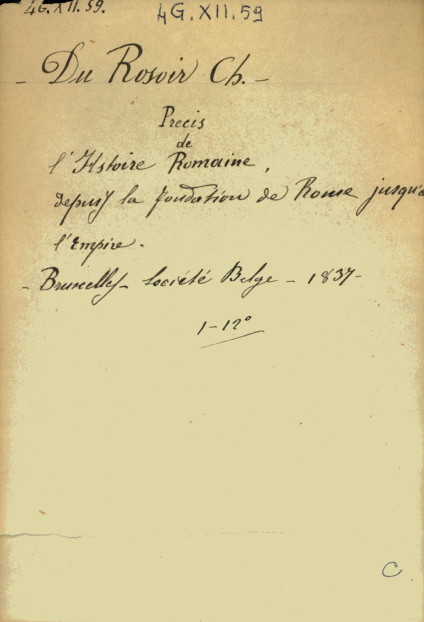 4G.XII.59.
4G.XII.59
- Du Rosoir Ch. -
Precis
de
l'Hstoire Romaine,
depuis la fondation de Rome jusqu'à
l'Empire.
- Bruxelles - Société Belge - 1837 -
1-12°
C